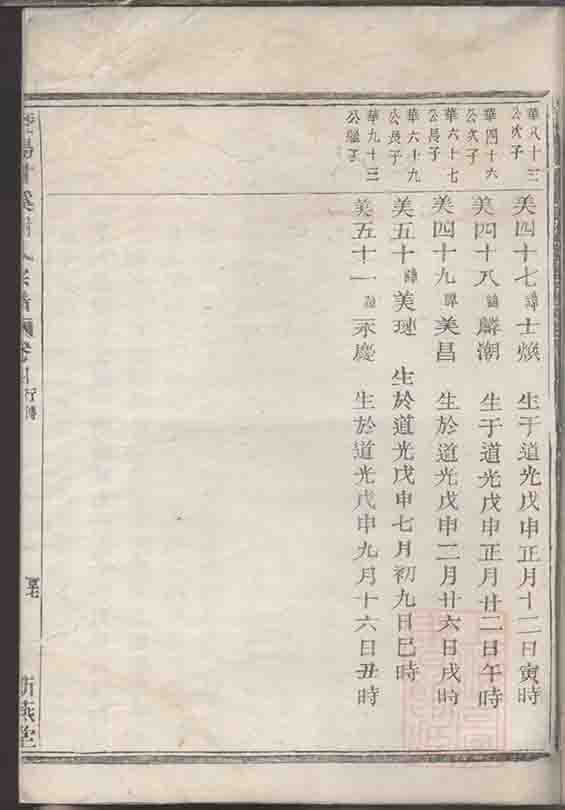 華八十三
公次子
美四十七諱士煥 生于道光戊申正月十二日寅時
華四十六
公次子
美四十八諱麟潮 生于道光戊申正月廿二日午時
華六十七
公長子
美四十九諱美昌 生於道光戊申二月廿六日戌時
華六十九
公長子
美五十諱美璉 生於道光戊申七月初九日巳時
華九十三
公繼子
美五十一諱永慶 生於道光戊申九月十六日丑時
行傳